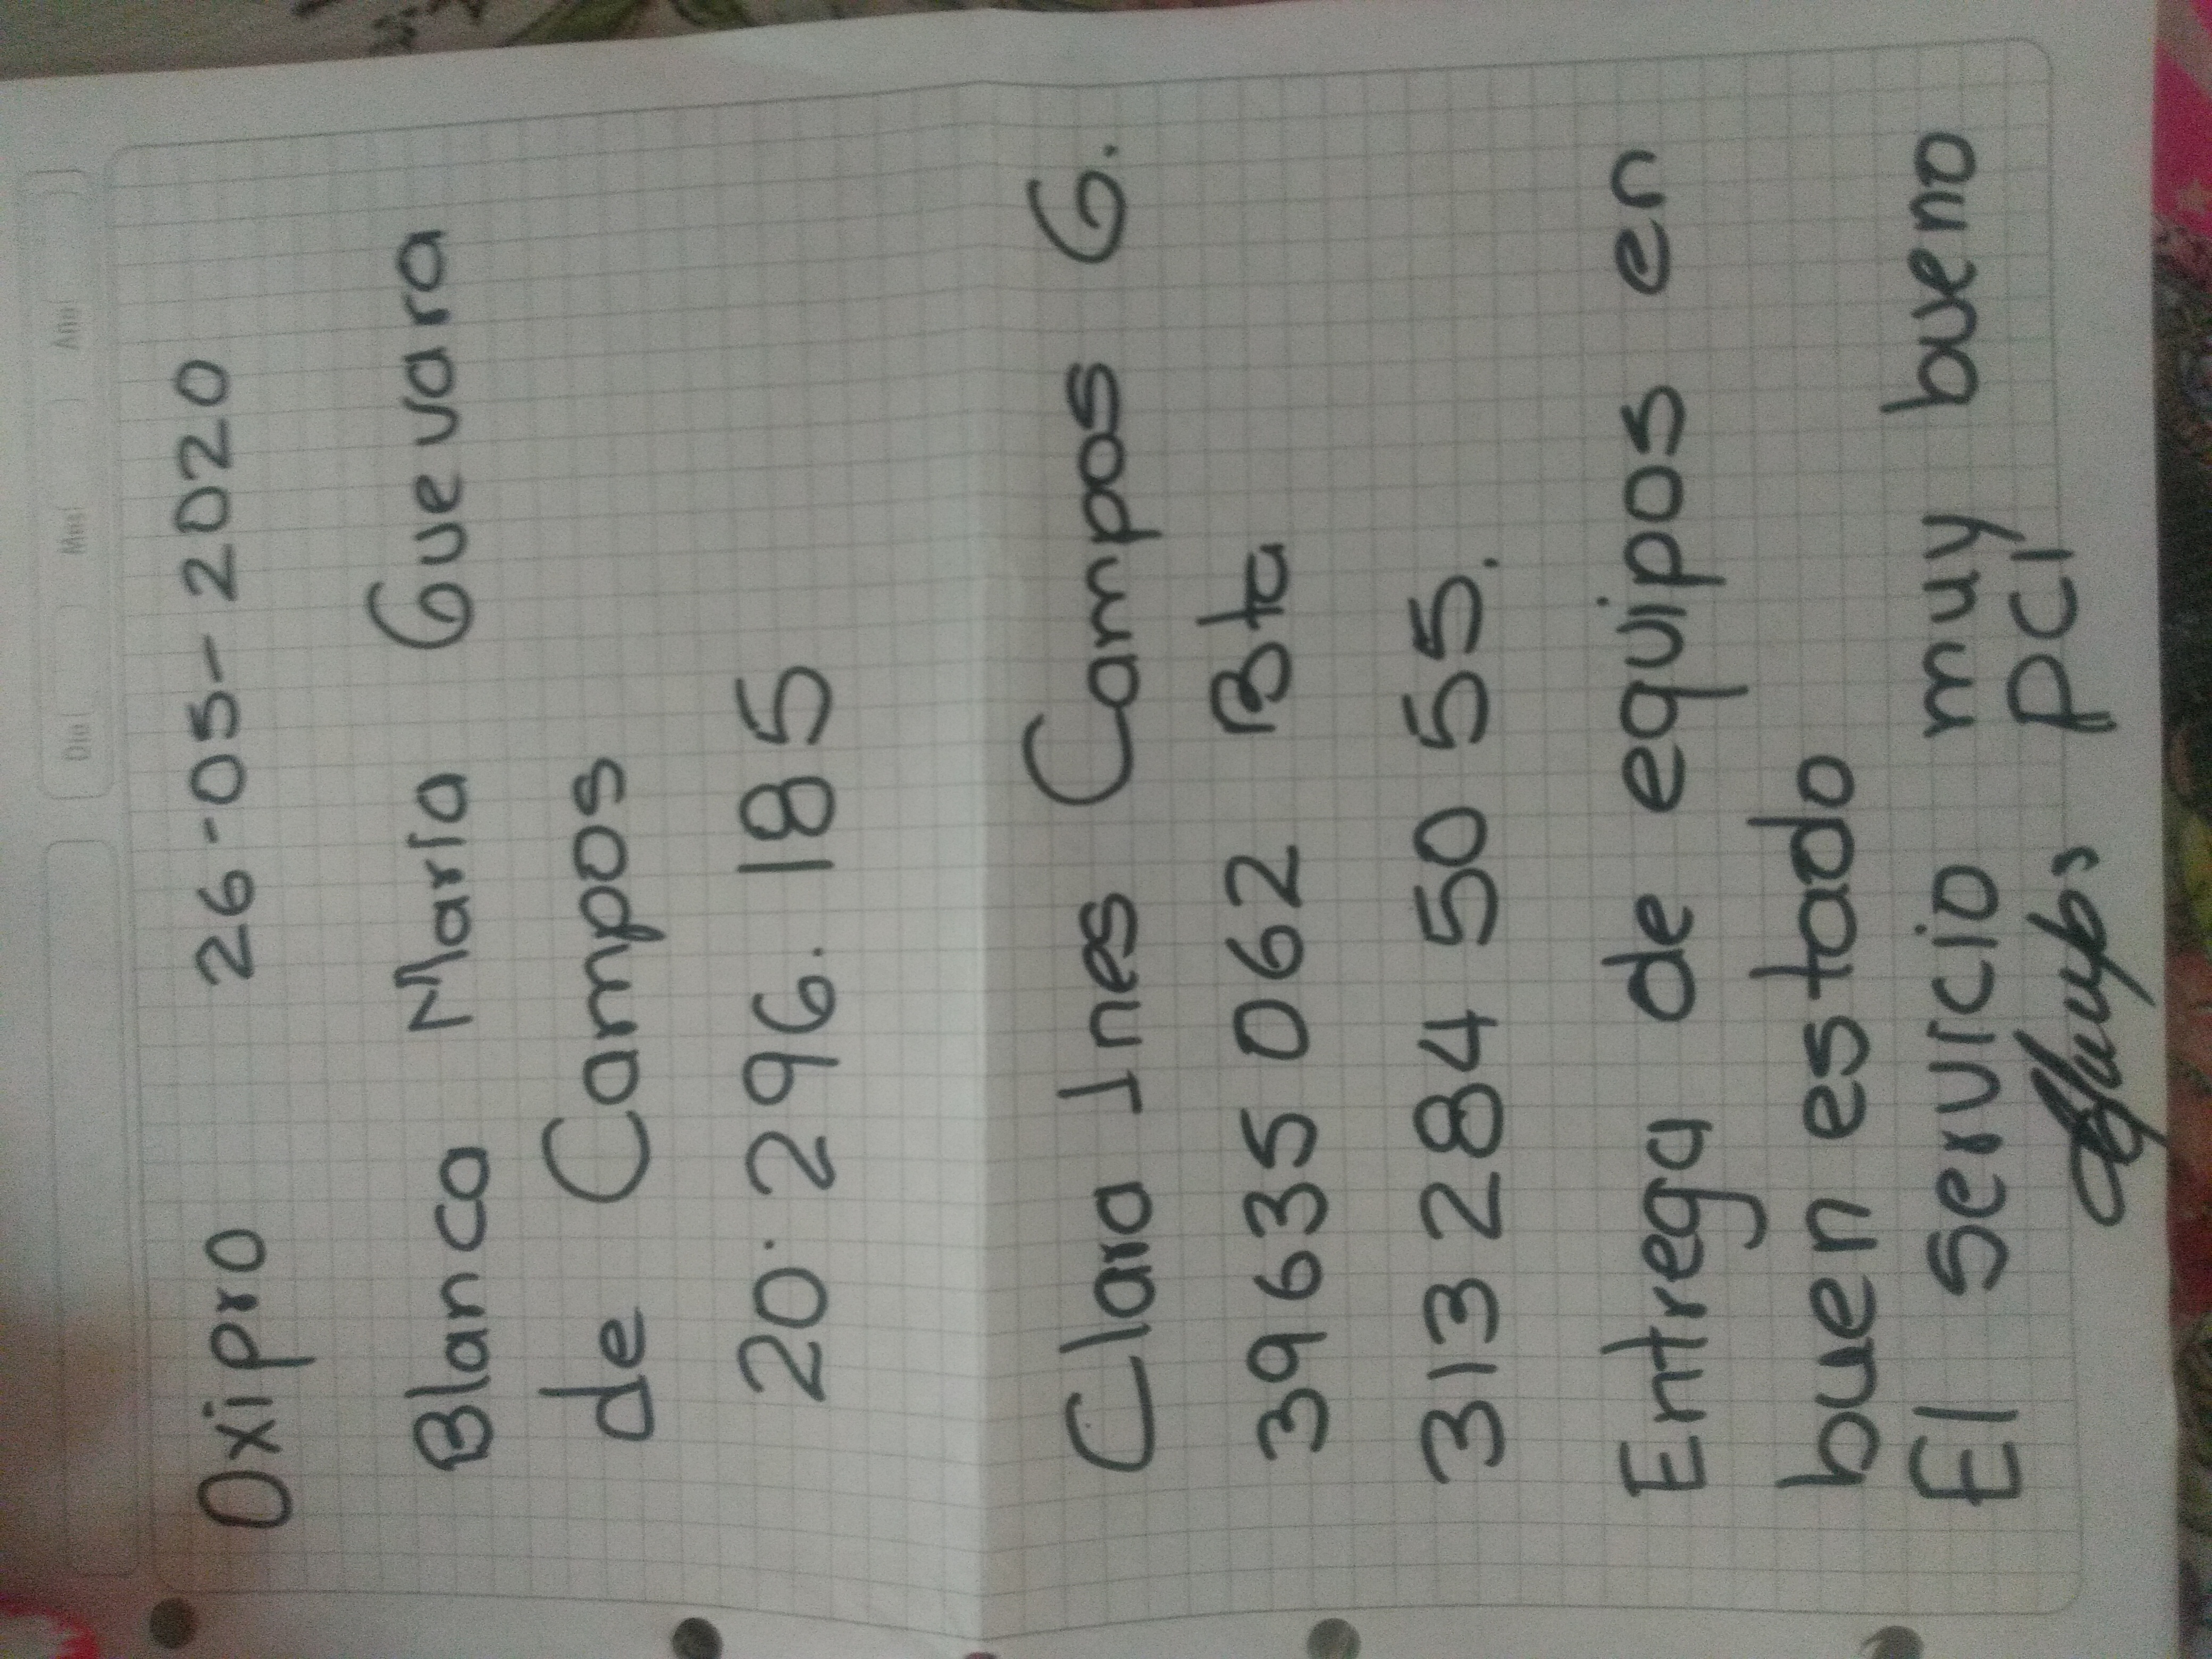 Dia Mes Año
Oxipro 26-05-2020
Blanca Maria Guevara
de Campos
20.296.185
Clara Ines Campos G.
39635062 Bta
313 284 50 55.
Entrega de equipos en
buen estado
El servicio muy bueno
PCI